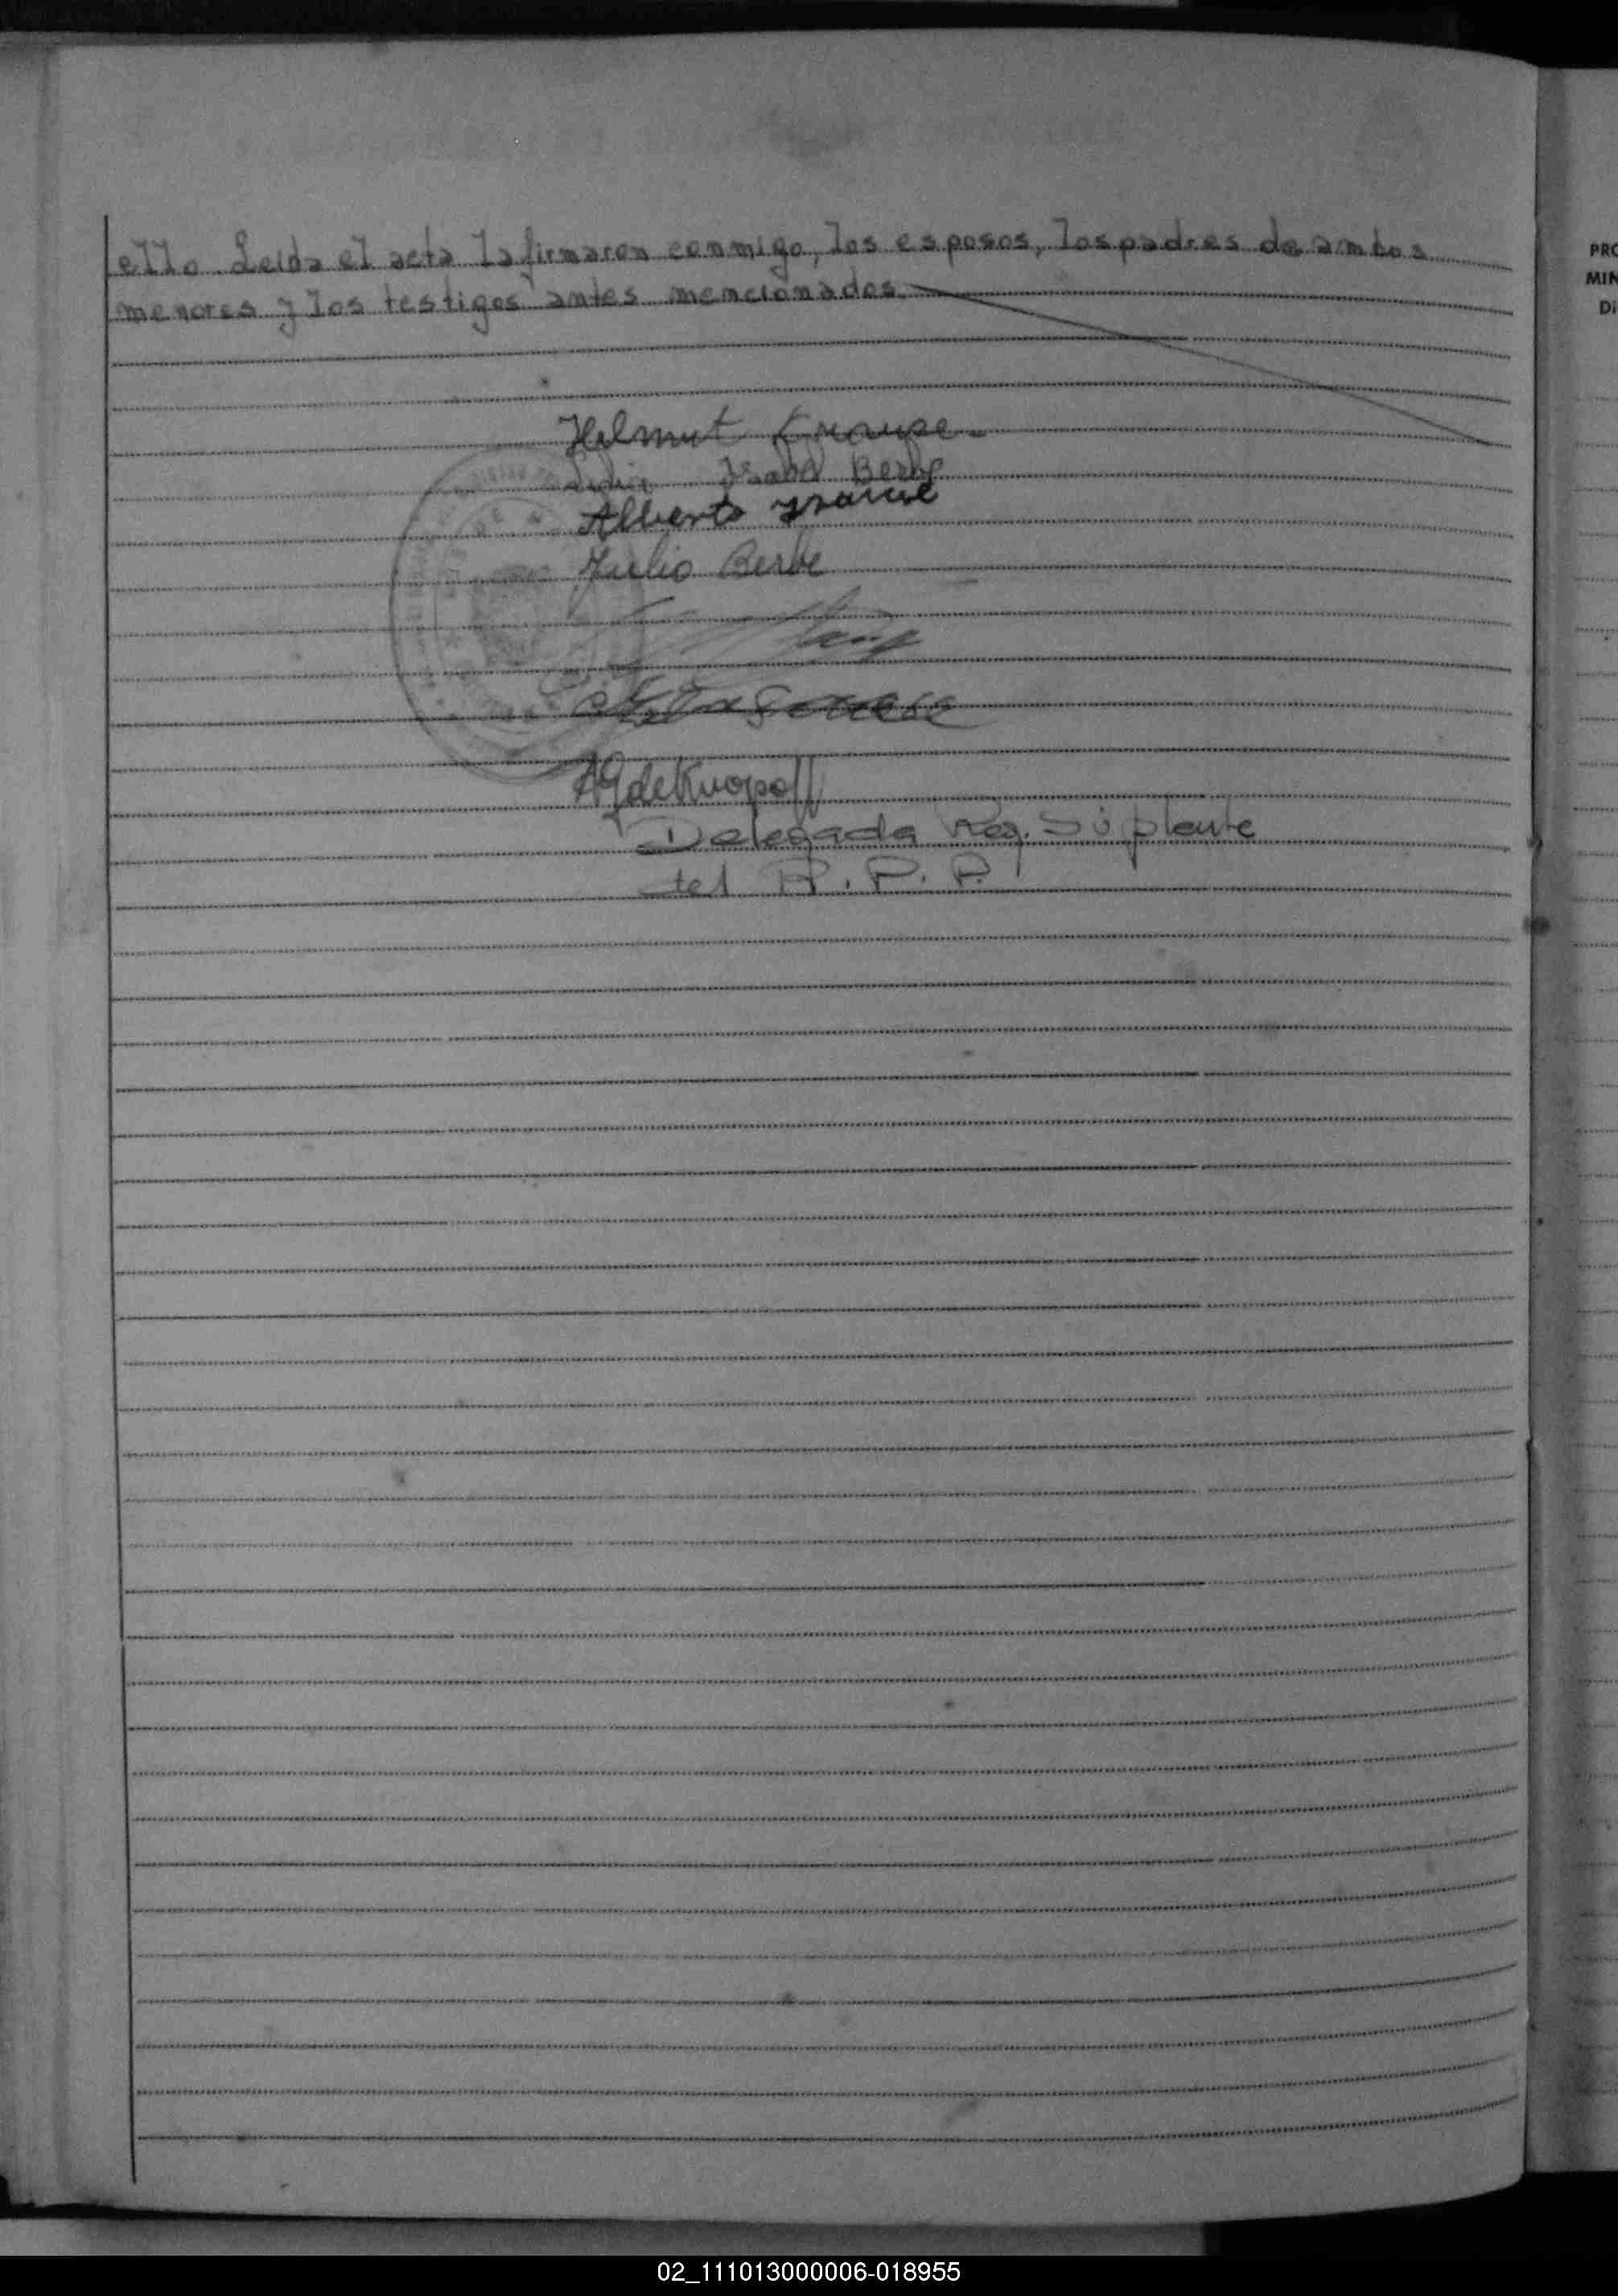 ello. Leida el acta la firmaron conmigo, los esposos, los padres de ambos
menores y los testigos antes mencionados.
Helmut Krause
Isabel Berbe
Alberto
Julio Berbe
AG de Knopoff
Delegada Reg. Suplente
del R. P. P.
PRO
MIN
Di
02_111013000006-018955